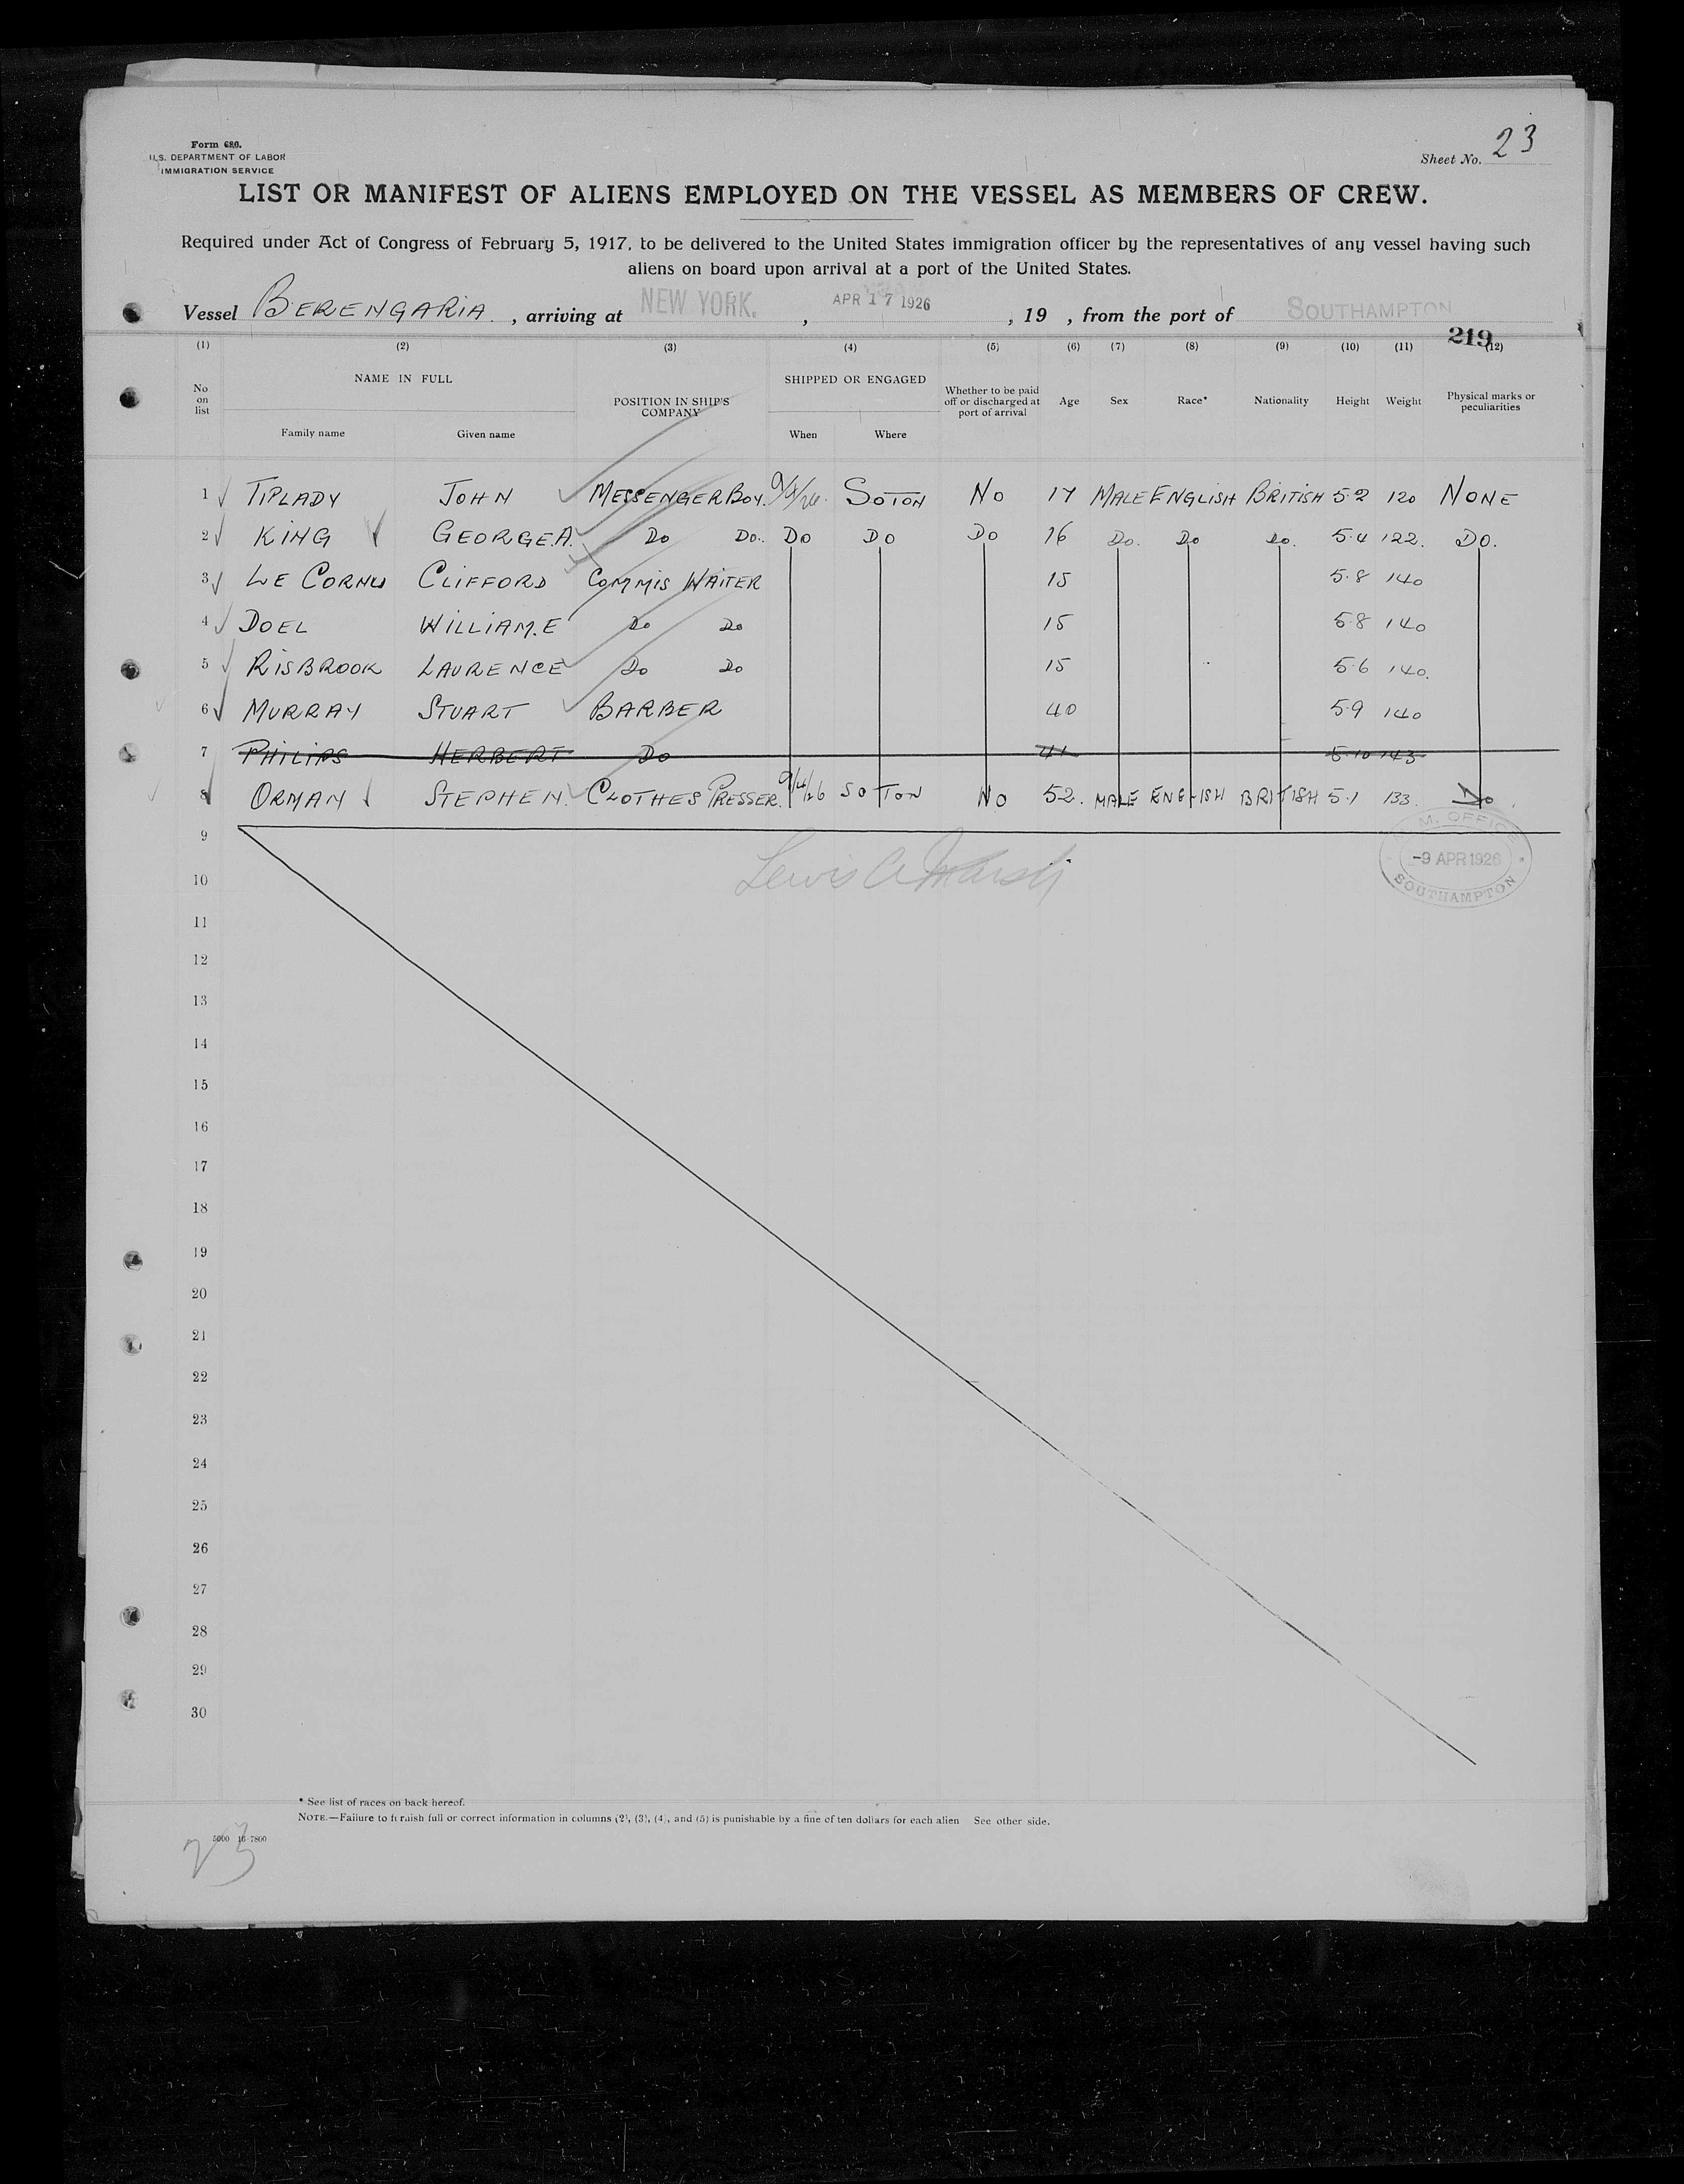 Form 680.
U.S. DEPARTMENT OF LABOR
IMMIGRATION SERVICE
Sheet No. 23
LIST OR MANIFEST OF ALIENS EMPLOYED ON THE VESSEL AS MEMBERS OF CREW.
Required under Act of Congress of February 5, 1917, to be delivered to the United States immigration officer by the representatives of any vessel having such
aliens on board upon arrival at a port of the United States.
Vessel BERENGARIA, arriving at NEW YORK. , APR 17 1926 , 19 , from the port of SOUTHAMPTON
219
(1) (2) (3) (4) (5) (6) (7) (8) (9) (10) (11) (12)
No on list NAME IN FULL POSITION IN SHIP'S COMPANY SHIPPED OR ENGAGED Whether to be paid off or discharged at port of arrival Age Sex Race* Nationality Height Weight Physical marks or peculiarities
Family name Given name When Where
1 TIPLADY JOHN MESSENGER BOY. 9/4/26. SOTON NO 17 MALE ENGLISH BRITISH 5-2 120 NONE
2 KING GEORGE.A. DO DO.. DO DO DO 16 DO. DO DO. 5-4 122. DO.
3 LE CORNU CLIFFORD COMMIS WAITER 15 5-8 140
4 DOEL WILLIAM.E DO DO 15 5-8 140
5 RISBROOK LAURENCE DO DO 15 5-6 140.
6 MURRAY STUART BARBER 40 5-9 140
7 PHILIPS HERBERT DO 41 5-10 143
8 ORMAN STEPHEN. CLOTHES PRESSER. 9/4/26 SOTON NO 52. MALE ENGLISH BRITISH 5-1 133. DO.
9
Lewis A Marsh
M. OFFICE
-9 APR 1926
SOUTHAMPTON
10
11
12
13
14
15
16
17
18
19
20
21
22
23
24
25
26
27
28
29
30
* See list of races on back hereof.
NOTE.—Failure to furnish full or correct information in columns (2), (3), (4), and (5) is punishable by a fine of ten dollars for each alien See other side.
5000 16-7800
23